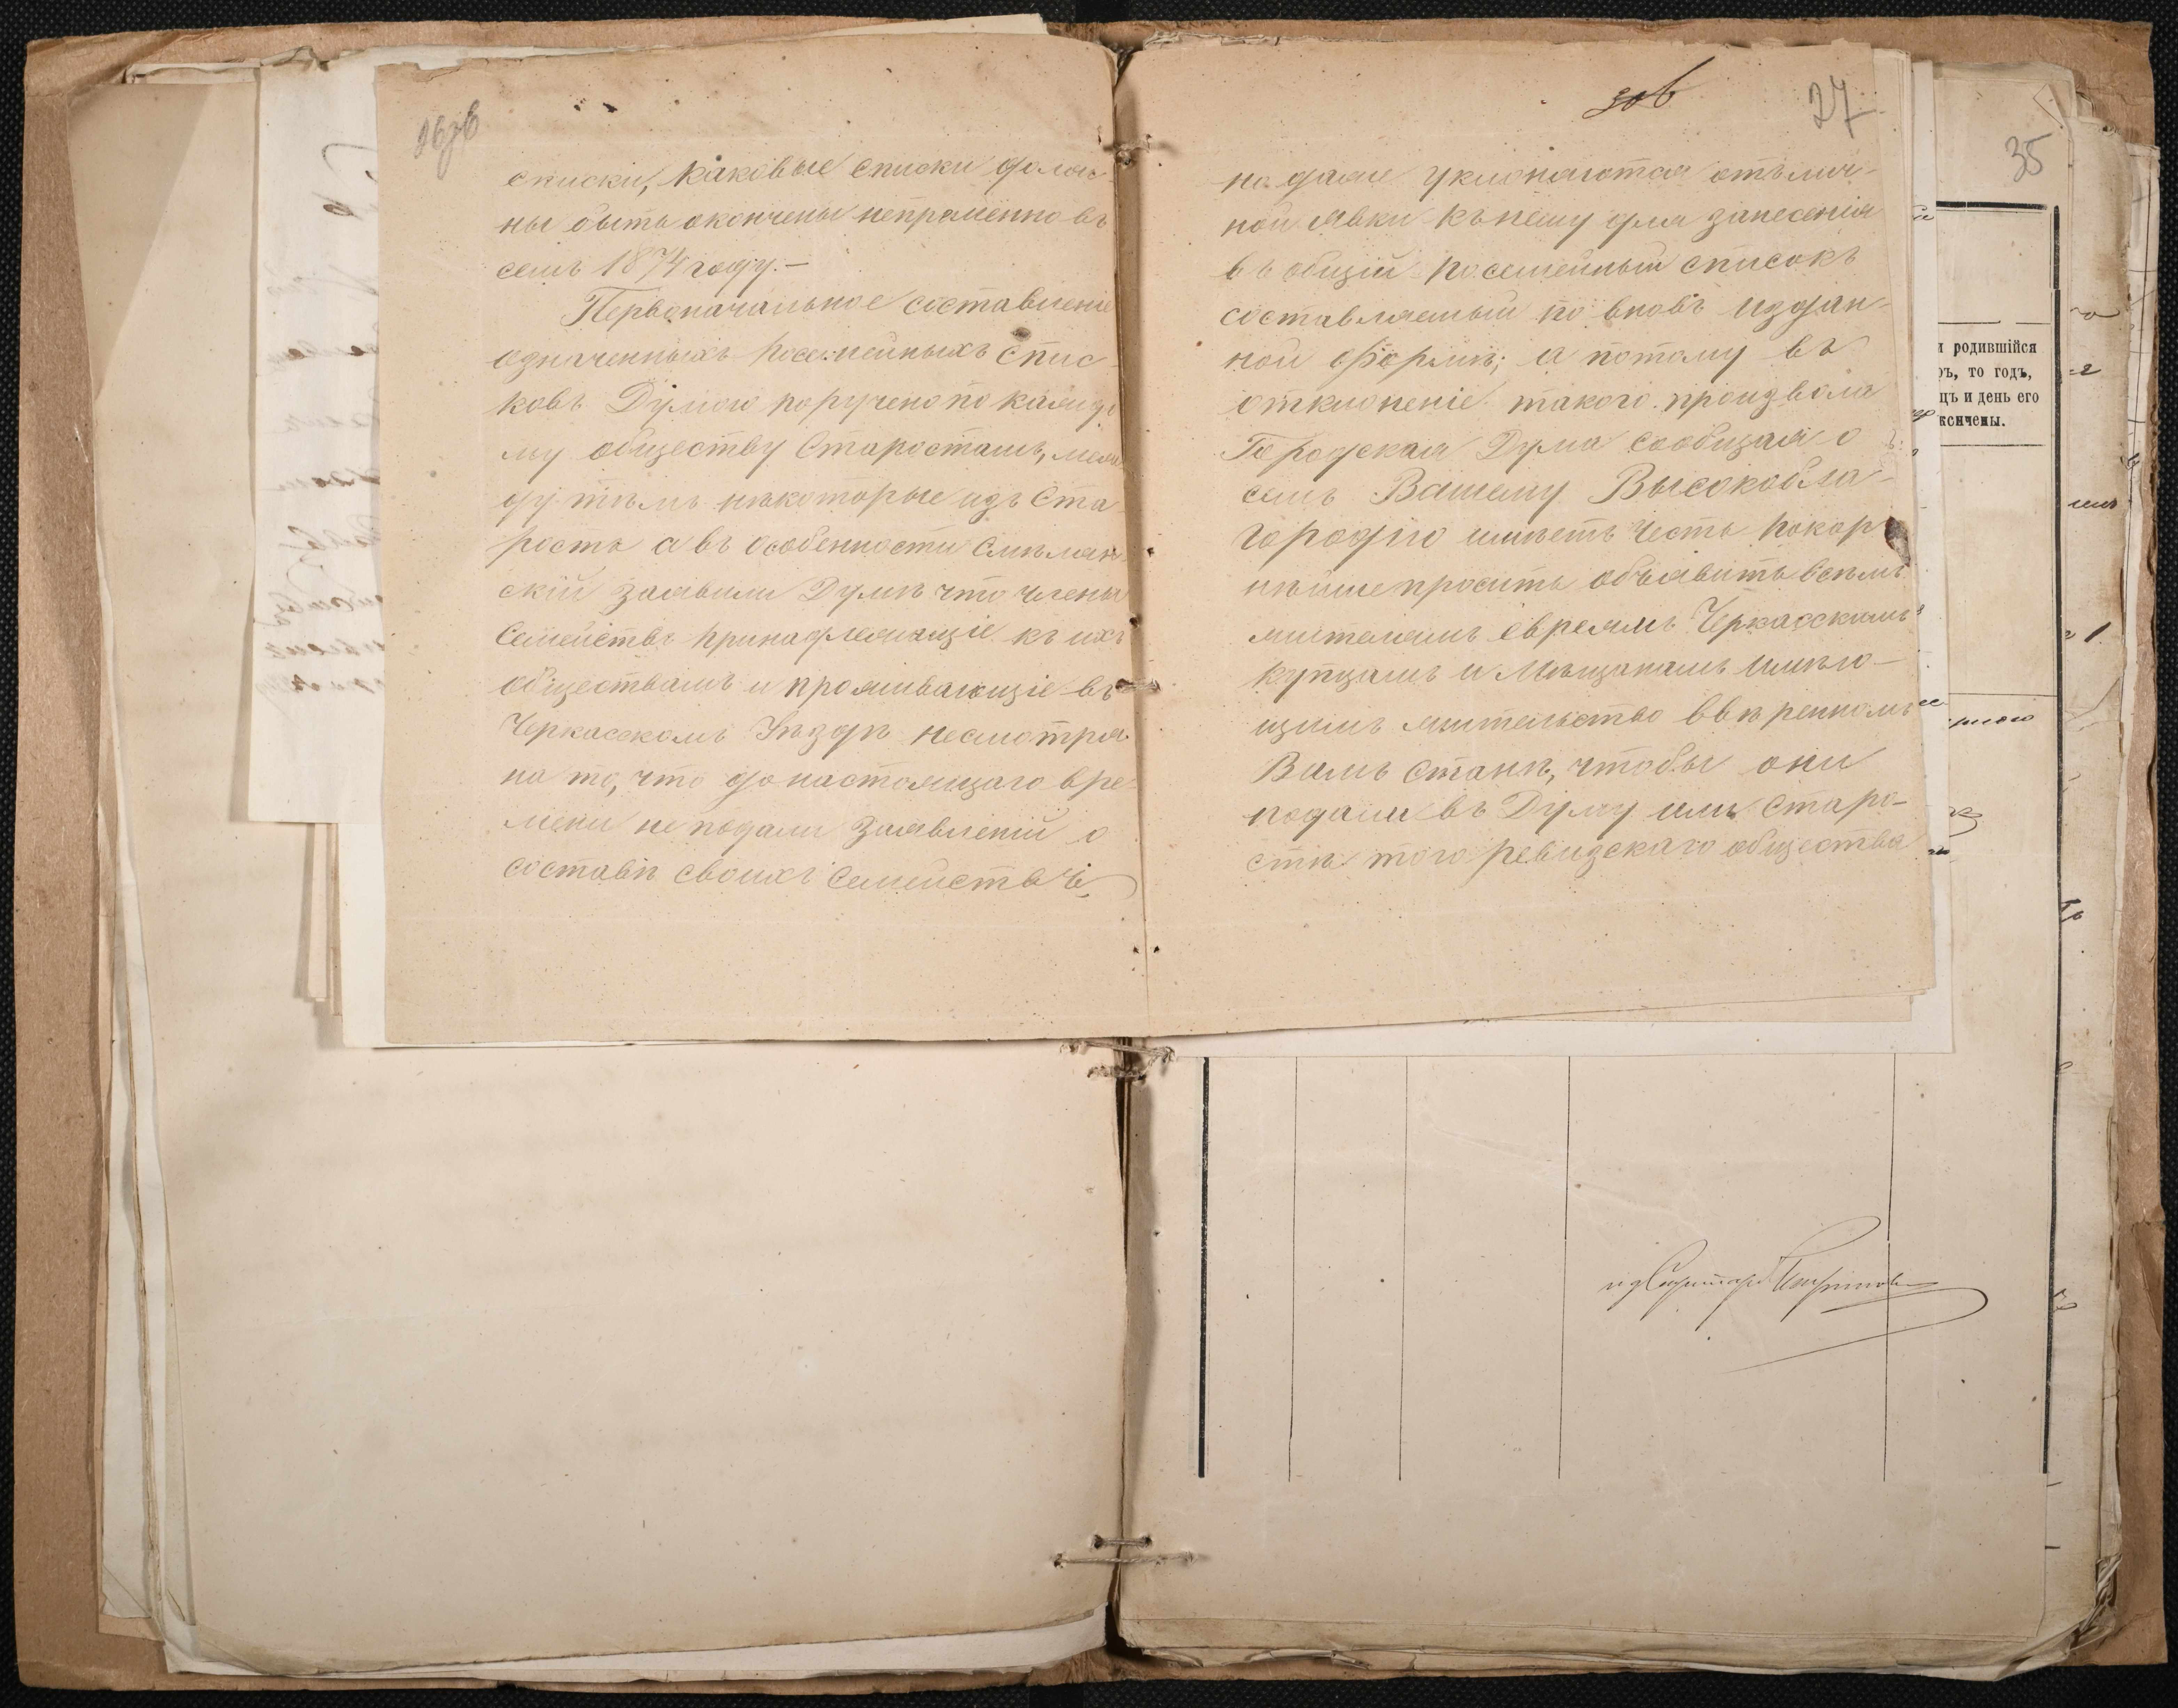 списки, каковые списки долж-
ны быть окончены непременно въ
семъ 1874 году.-
Первоначальное составленіе
означенныхъ посемейныхъ спис
ковъ Думою поручено по каждо
му обществу Старостамъ, меж
ду тѣмъ нѣкоторые изъ Ста
ростъ а въ особенности Смѣлян
скій заявили Думѣ что члены
Семействъ принадлежащіе къ ихъ
обществамъ и проживающіе въ
Черкасскомъ Уѣздѣ несмотря
на то, что до настоящаго вре-
мени не подали заявленій о
составѣ своихъ Семействъ
27
но даже уклоняются отъ лич-
ной явки къ нему для занесенія
въ общій посемейный списокъ
составляемый по вновь издан-
ной формѣ; а потому въ
отклоненіе такого произвола
Городская Дума сообщая о
семъ Вашему Высокобла-
городію имѣетъ честь покор
нѣйше просить объявить всѣмъ
жителямъ евреямъ Черкасскимъ
купцамъ и Мѣщанамъ имѣю-
щимъ жительство ввѣренномъ
Вамъ Станѣ, чтобы они
подали въ Думу или Старо-
стѣ того ревизскаго общества
35
и родившійся
ръ, то годъ,
цъ и день его
ксичены.